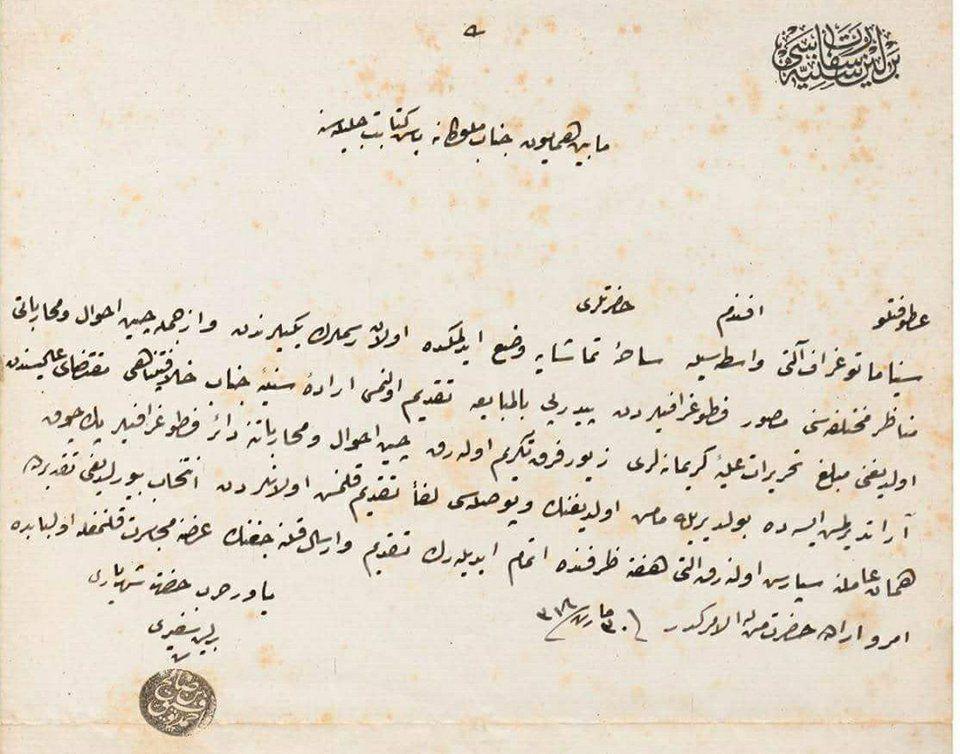 برلین سفارت سنیه‌سی
مابین همایون جناب ملوکانه باش کتابت جلیله‌سنه
عطوفتلو افندم حضرتلری
سیناماتوغراف آلتی واسطه‌سیله ساحهٔ تماشایه وضع ایدلمکده اولان رسملرك یکیلرندن و از جمله چین احوال و محارباتی
مناظر مختلفه‌سنی مصور فطوغرافیلردن پیدرپی بالمبایعه تقدیم اولنمسی ارادهٔ سنیهٔ جناب خلافتپناهی مقتضای عالیسندن
اولدیغنی مبلغ تحریرات علیهٔ کریمانه‌لری زیور فرق تکریم اوله‌رق چین احوال و محارباتنه دائر فطوغرافیلر پك چوق
آراندیرلمش ایسه ده بولدیریله‌مامش اولدیغنك و پوصله‌سی لفاً تقدیم قلنمش اولانلردن انتخاب بیوریلدیغی تقدیرده
همان عاملنه سپارش اولنه‌رق التی هفته ظرفنده اتمام ایدیله‌رك تقدیم و ارسال قلنه‌جغنك عرضنه مجاسرت قلنمغله اولبابده
امر و اراده حضرت من له الامرکدر ٣٠ مارت ٣١٨
یاور حرب حضرت شهریاری
برلین سفیری